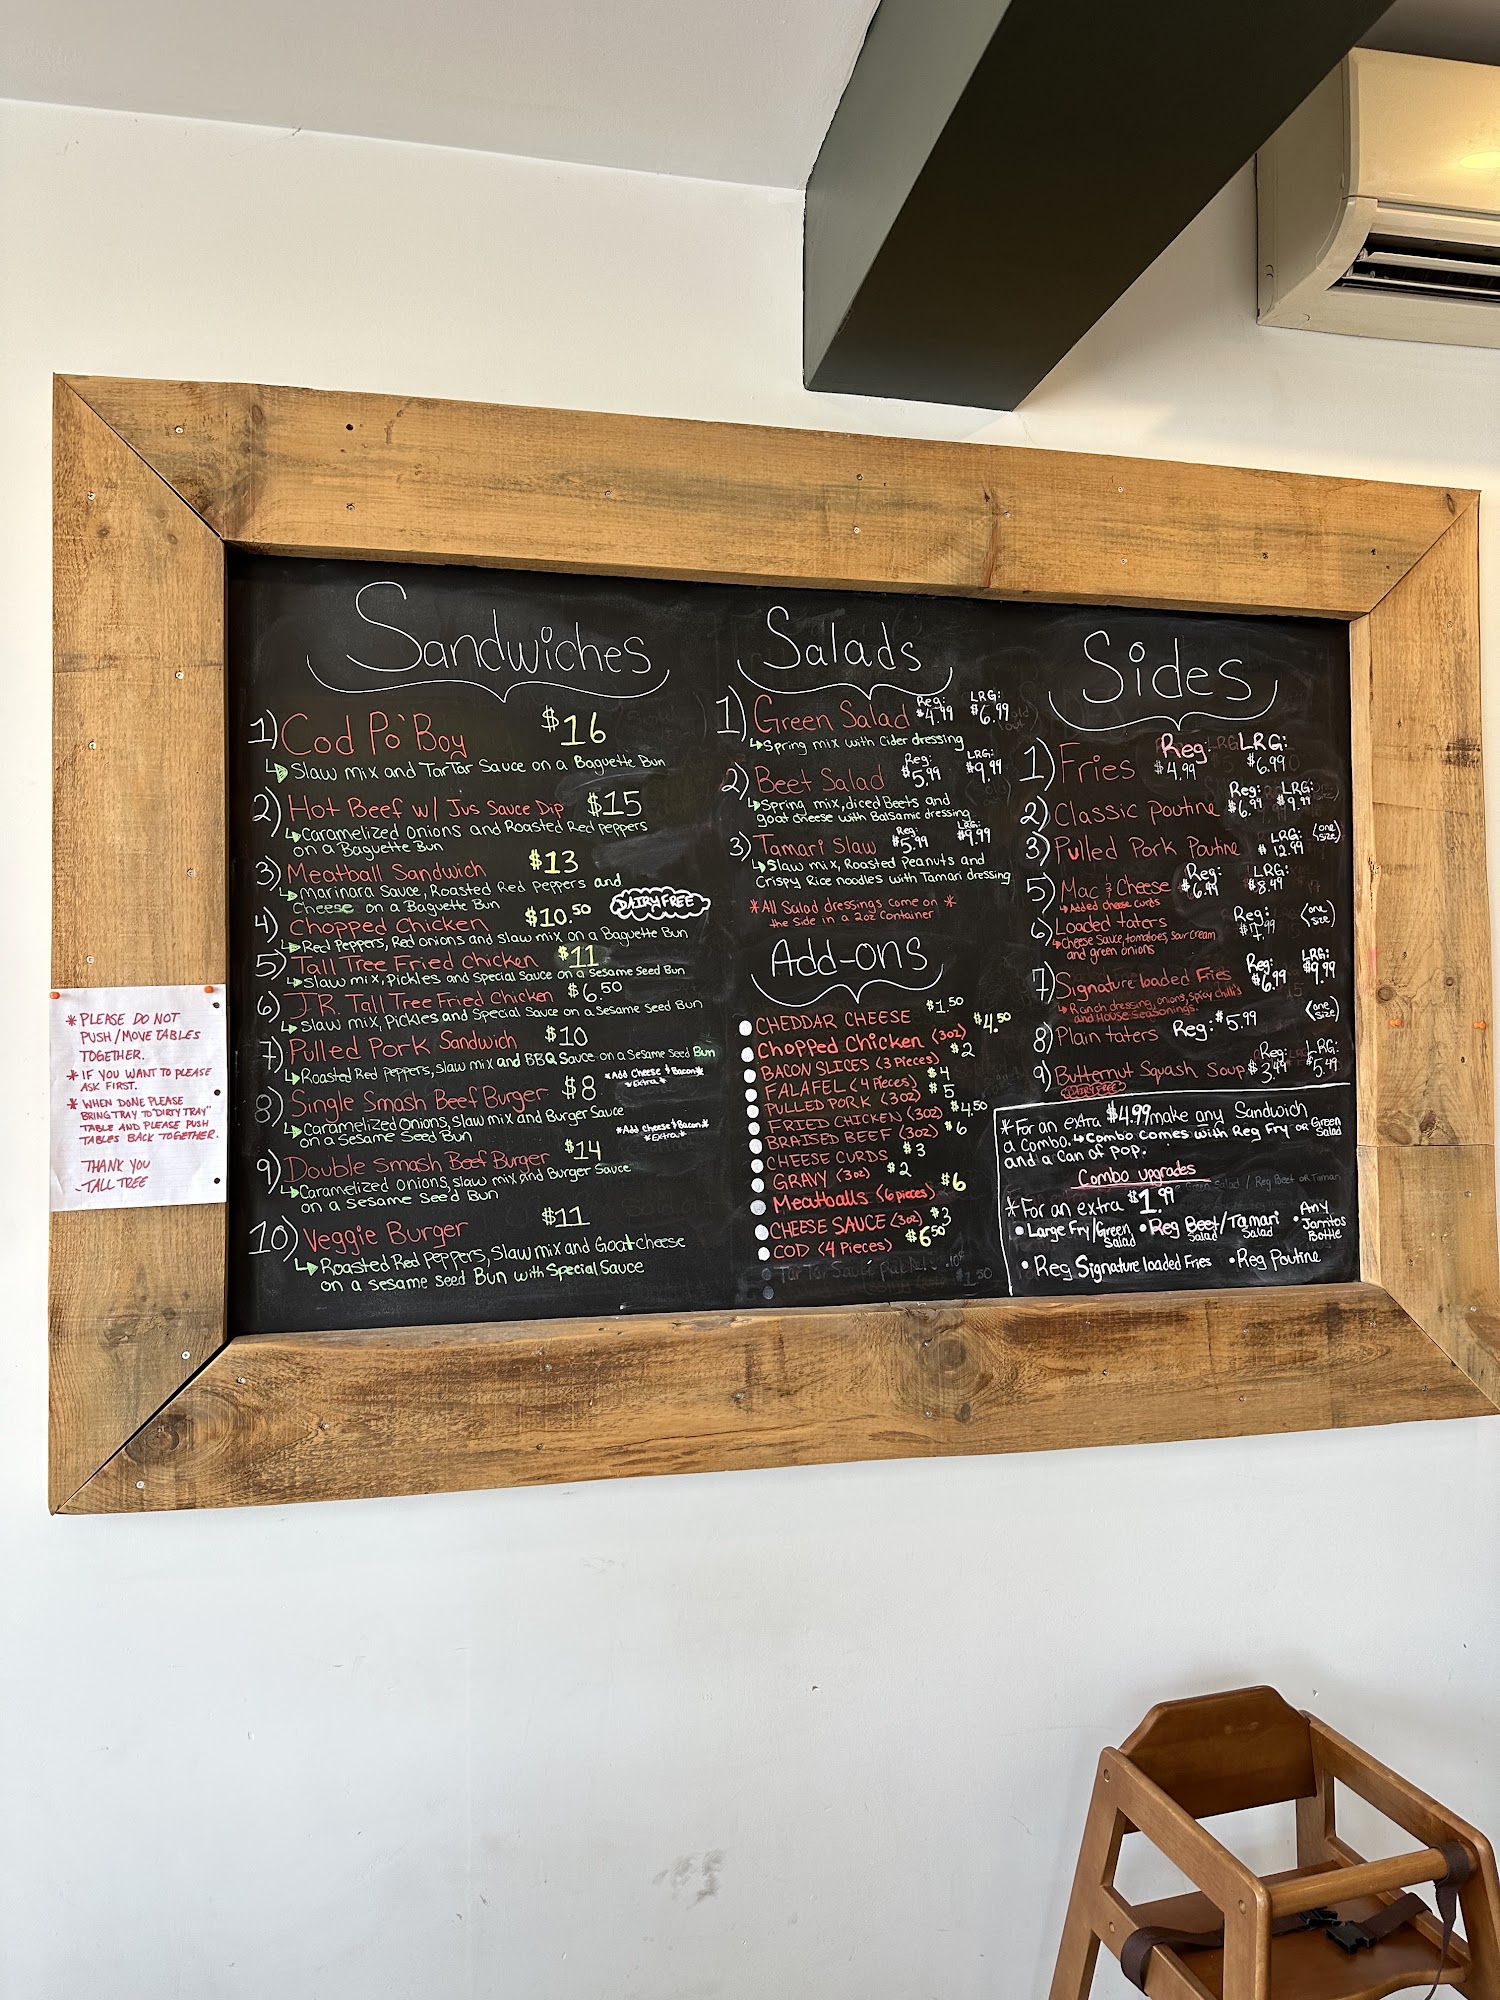 * PLEASE DO NOT
PUSH/MOVE TABLES
TOGETHER.
* IF YOU WANT TO PLEASE
ASK FIRST.
* WHEN DONE PLEASE
BRING TRAY TO "DIRTY TRAY"
TABLE AND PLEASE PUSH
TABLES BACK TOGETHER.
THANK YOU
- TALL TREE
Sandwiches
1) Cod Po'Boy $16
Slaw mix and TarTar Sauce on a Baguette Bun
2) Hot Beef w/ Jus Sauce Dip $15
Caramelized onions and Roasted Red peppers
on a Baguette Bun
3) Meatball Sandwich $13
Marinara Sauce, Roasted Red Peppers and
Cheese on a Baguette Bun
4) Chopped Chicken $10.50 DAIRY FREE
Red Peppers, Red onions and slaw mix on a Baguette Bun
5) Tall Tree Fried Chicken $11
Slaw mix, Pickles and Special Sauce on a Sesame Seed Bun
6) J.R. Tall Tree Fried Chicken $6.50
Slaw mix, Pickles and Special Sauce on a Sesame Seed Bun
7) Pulled Pork Sandwich $10
Roasted Red peppers, slaw mix and BBQ Sauce on a Sesame Seed Bun
8) Single Smash Beef Burger $8 *Add Cheese & Bacon*
*Extra*
Caramelized onions, slaw mix and Burger Sauce
on a Sesame Seed Bun
*Add Cheese & Bacon*
*Extra*
9) Double Smash Beef Burger $14
Caramelized onions, slaw mix and Burger Sauce
on a Sesame See'd Bun
10) Veggie Burger $11
Roasted Red Peppers, Slaw mix and Goat cheese
on a sesame seed Bun with Special Sauce
Salads
1) Green Salad Reg: $4.99 LRG: $6.99
Spring mix with Cider dressing
2) Beet Salad Reg: $5.99 LRG: $9.99
Spring mix, diced Beets and
goat cheese with Balsamic dressing
3) Tamari Slaw Reg: $5.99 LRG: $9.99
Slaw mix, Roasted Peanuts and
Crispy Rice noodles with Tamari dressing
*All Salad dressings come on *
the side in a 2oz container
Add-ons
CHEDDAR CHEESE $1.50
Chopped Chicken (3oz) $4.50
BACON SLICES (3 Pieces) $2
FALAFEL (4 Pieces) $4
PULLED PORK (3oz) $5
FRIED CHICKEN (3oz) $4.50
BRAISED BEEF (3oz) $6
CHEESE CURDS $3
GRAVY (3oz) $2
Meatballs (6 pieces) $6
CHEESE SAUCE (3oz) $3
COD (4 Pieces) $6.50
Sides
1) Fries Reg: $4.99 LRG: $6.99
2) Classic Poutine Reg: $6.99 LRG: $9.99
3) Pulled Pork Poutine LRG: $12.99 (one size)
5) Mac & Cheese Reg: $6.99 LRG: $8.49
Added cheese curds
6) Loaded taters Reg: (one size)
Cheese Sauce, tomatoes, Sour Cream
and green onions
7) Signature loaded Fries Reg: $6.99 LRG: $9.99
Ranch dressing, onions, Spicy chilli's
and House Seasonings.
8) Plain taters Reg: $5.99 (one size)
9) Butternut Squash Soup Reg: $3.49 LRG: $5.49
DAIRY FREE
*For an extra $4.99 make any Sandwich
a Combo. Combo comes with Reg Fry or Green Salad
and a Can of Pop.
Combo upgrades
*For an extra $1.99
• Large Fry/Green Salad • Reg Beet Salad/Tamari Salad • Any Jarritos Bottle
• Reg Signature loaded Fries • Reg Poutine